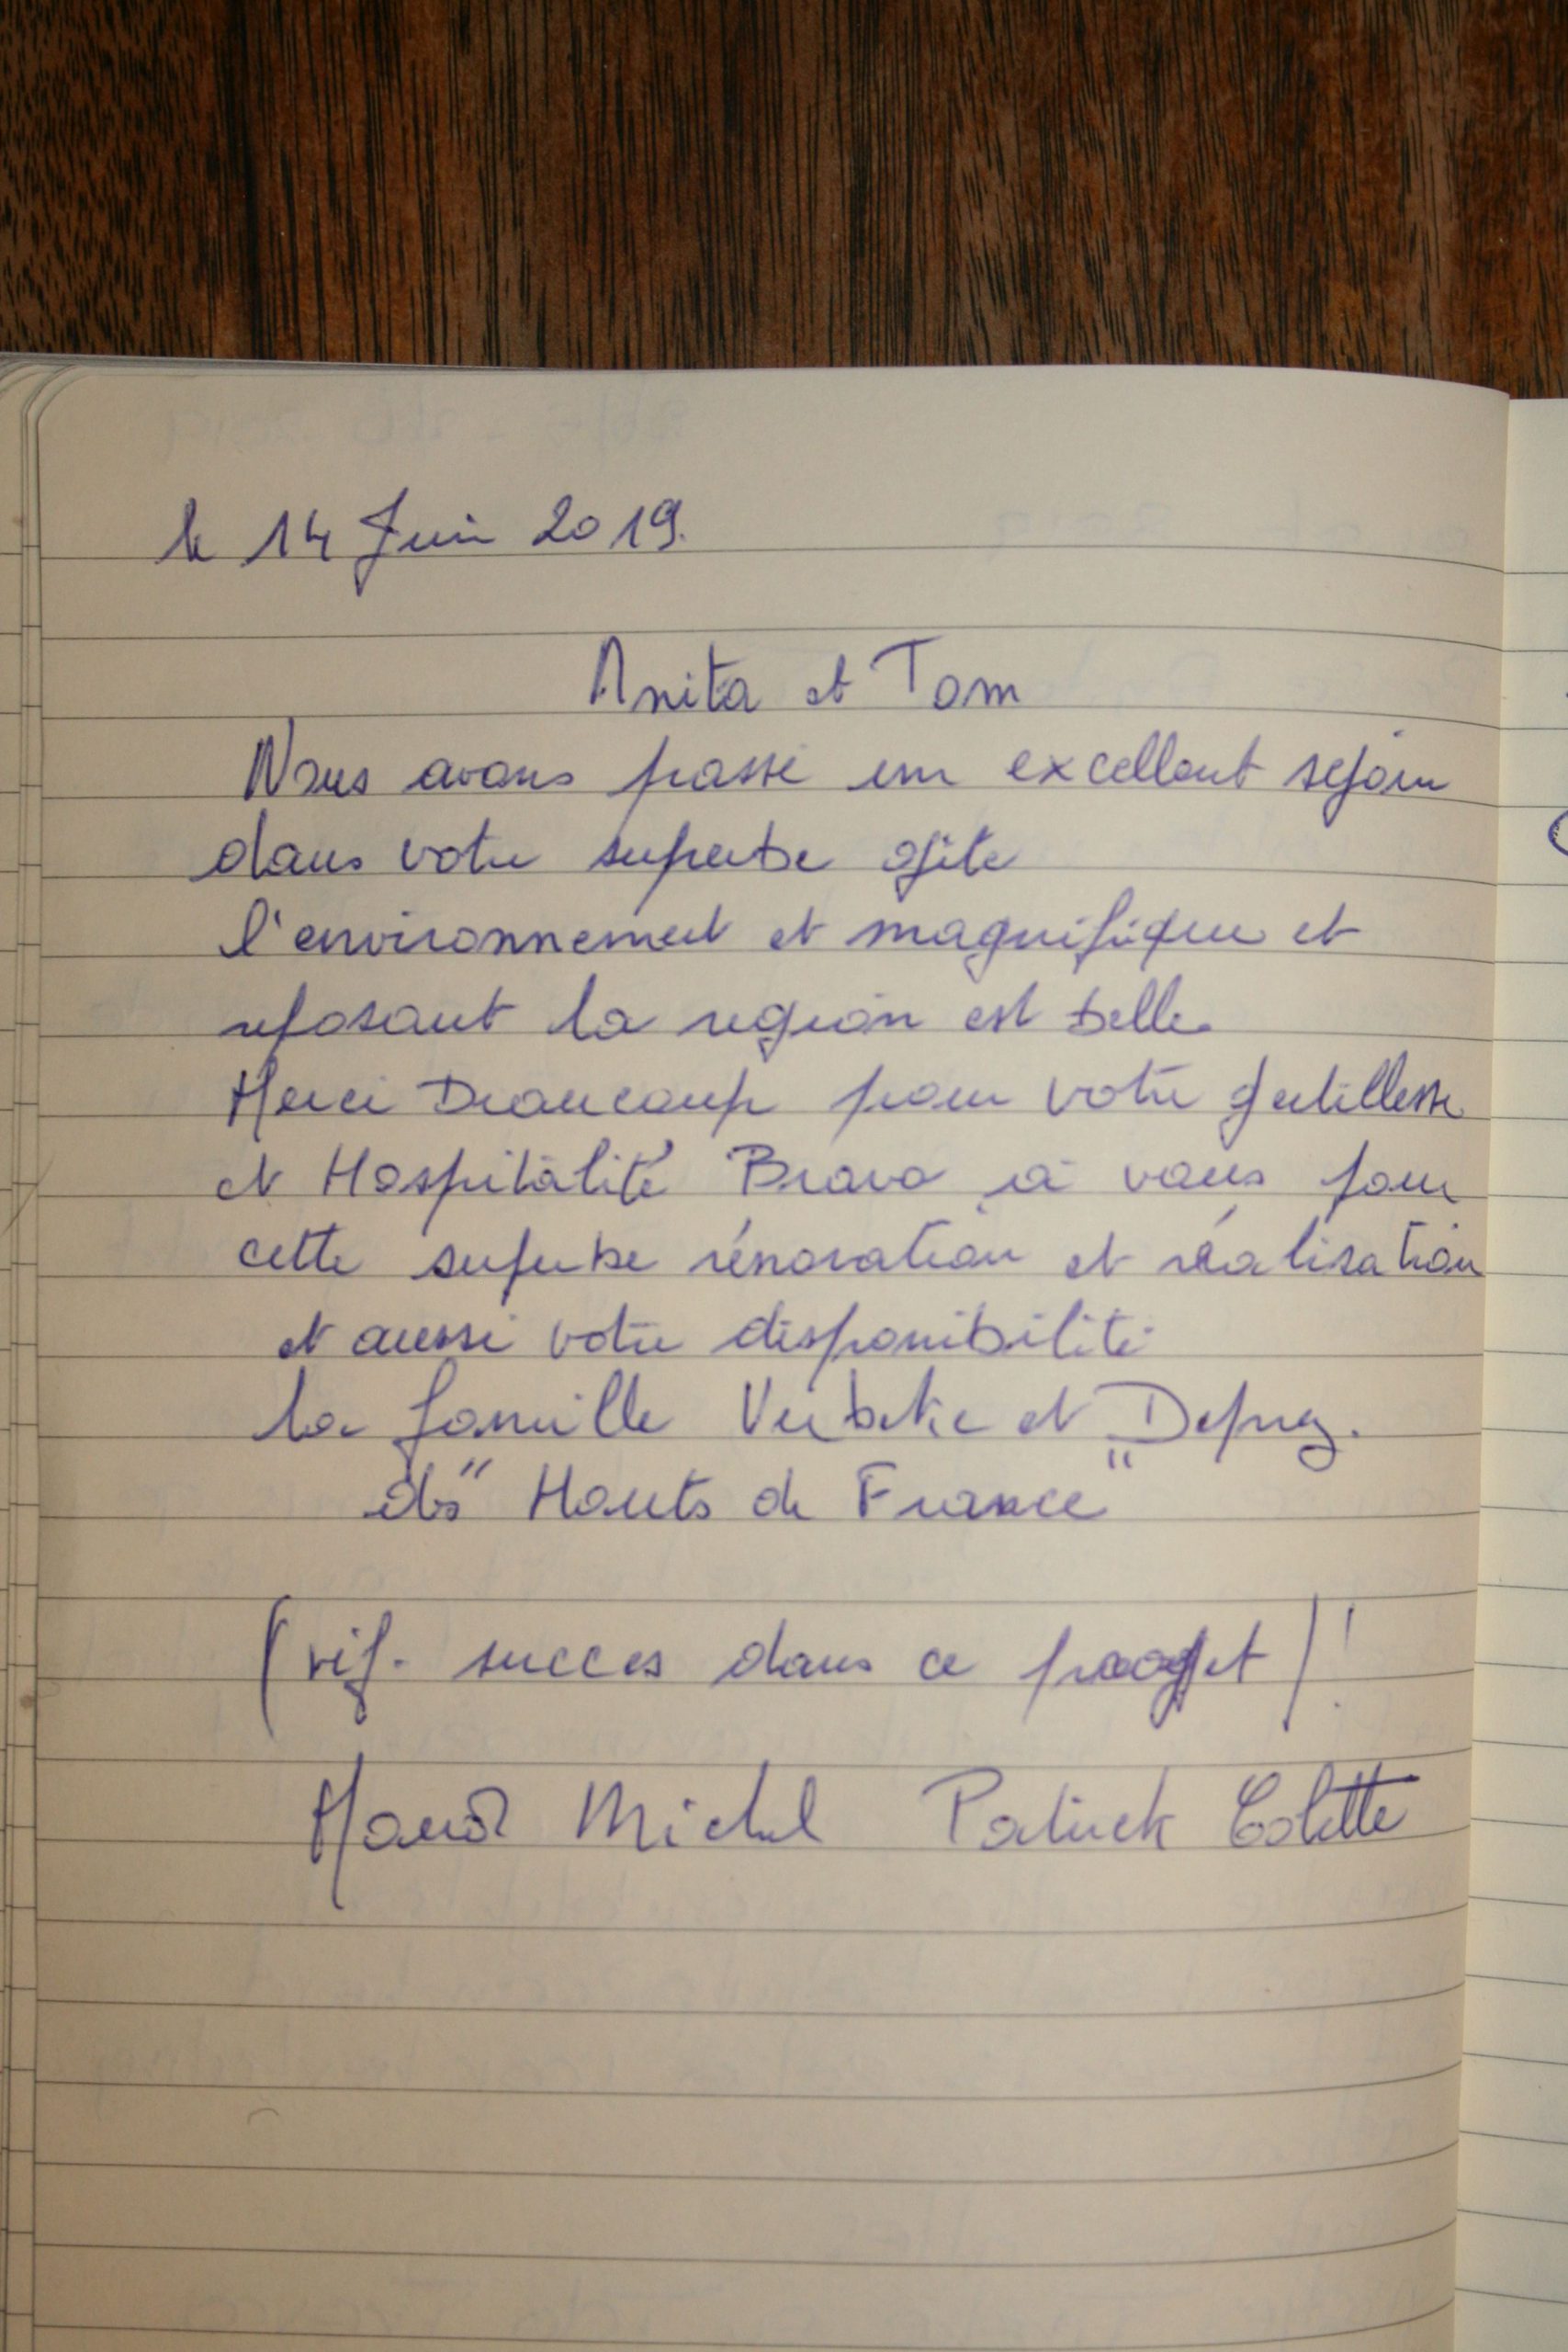 le 14 Juin 2019.
Anita et Tom
Nous avons passé un excellent sejour
dans votre superbe gîte
l'environnement et magnifique et
reposant la region est belle.
Merci Beaucoup pour votre gentillesse
et Hospitalité Bravo à vous pour
cette superbe rénovation et réalisation
et aussi votre disponibilité
la famille et Deprez.
des " Hauts de France "
(vif. succes dans ce projet)!
Michel Patrick Colette